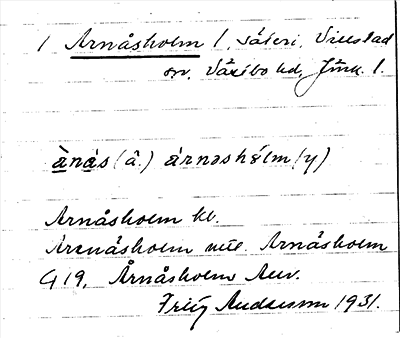 1 Arnåsholm 1, säteri, Villstad
sn. Västbo hd, Jönk. l.
ànás (â.) árnəshólm (y)
Arnåsholm kb.
Årnåsholm
Arnåsholm
G 19, Årnåsholm
Fritz Andersson 1931.